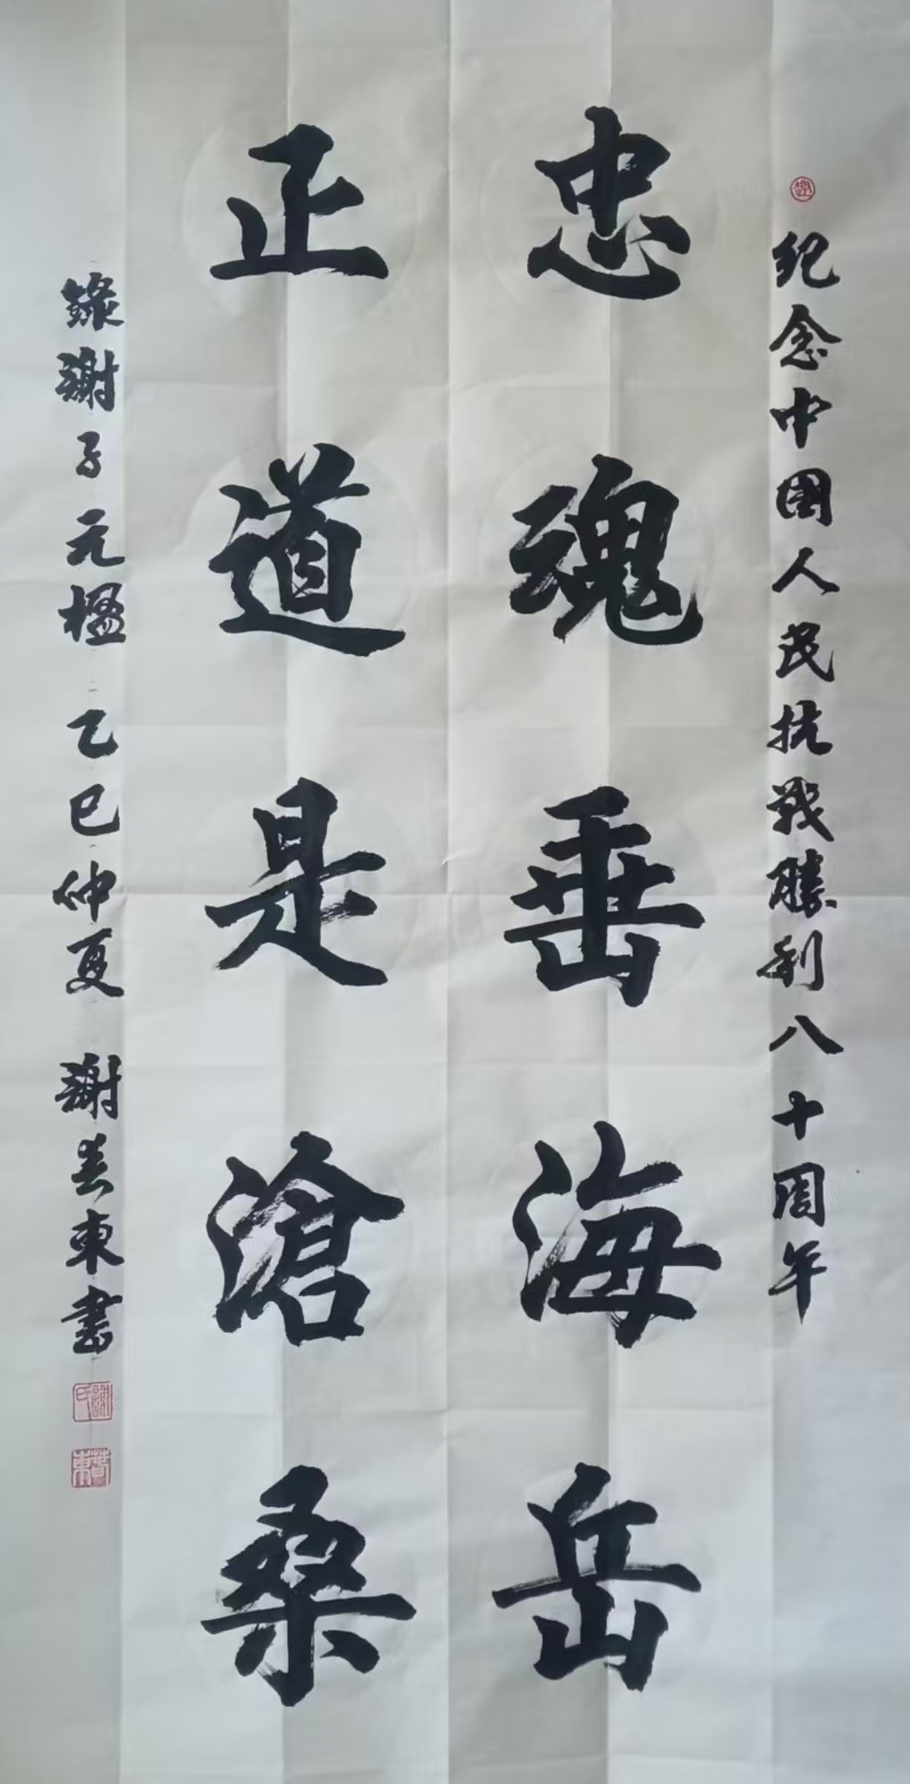 纪念中国人民抗战勝利八十周年
忠魂垂海岳
正道是滄桑
錄謝子元楹 乙巳仲夏 謝芸東書